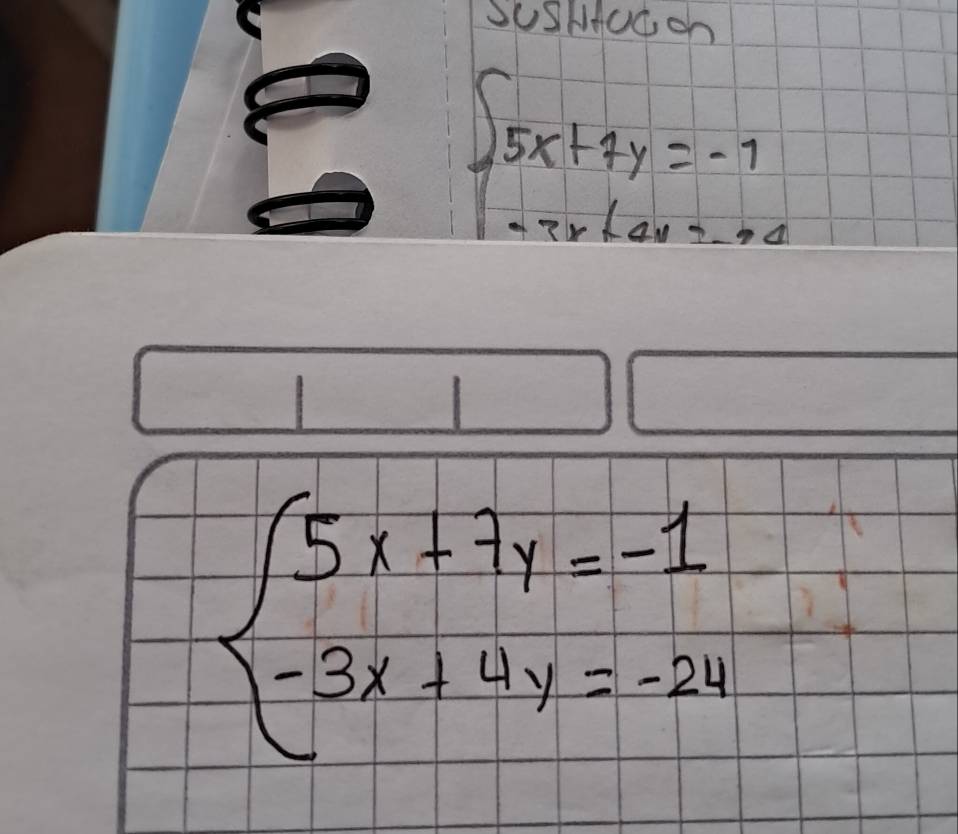 Sustitucion
5x+7y=-1
-3x+4y=-24
5x+7y=-1
-3x+4y=-24